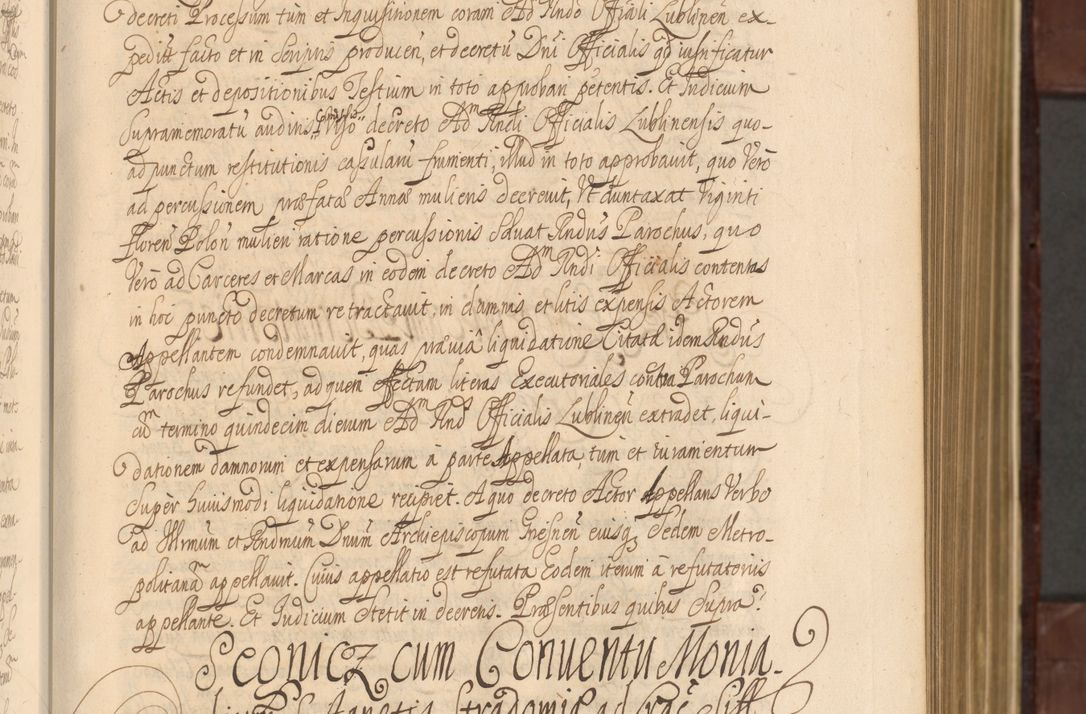 decreti Processum tum et Inquisitionem coram Adm Rndo Officiali Lublinen̄ ex-
pedit̄ facto et in Scriptis producen̄, et decretū Dn̄i Officialis qd̄ iustificatur
Actis et depositionibus Testium in toto approbari petentis. Et Iudicium
Supramemoratū auditis, Compertis, Viso decreto Adm Rndi Officialis Lublinensis quo-
ad punctum restitutionis capsularū frumenti, illud in toto approbavit, quo Verò
ad percussionem præfatæ Annæ mulieris decrevit, Vt duntaxat Viginti
floren̄ Polon̄ mulieri ratione percussionis Solvat Rndus Parochus, quo
Verò ad Carceres et Marcas in eodem decreto Adm Rndi Officialis contentas
in hoc puncto decretum retractavit, in damnis et litis expensis Actorem
Appellantem condemnavit, quas prævia liquidatione Citata idem Rndus
Parochus refundet, ad quem effectam literas Executoriales contra Parochum
cū termino quindecim dierum Adm Rnds Officialis Lublinen̄ extradet, liqui-
dationem damnorum et expensarum à parte Appellata, tum et iuramentum
Super huiusmodi liquidatione recipiet. A quo decreto Actor Appellans Verbo
ad Illrmum et Rndmum Dnum Archiepiscopum Gnesnen̄ eiusq; Sedem Metro-
politanā appellavit. Cuius appellatio est refutata Eodem iterum à refutatoriis
appellante. Et Iudicium Stetit in decretis. Præsentibus quibus Supra.
Segnicz cum Conventu Monia-
Stradomiæ ad Crac̄